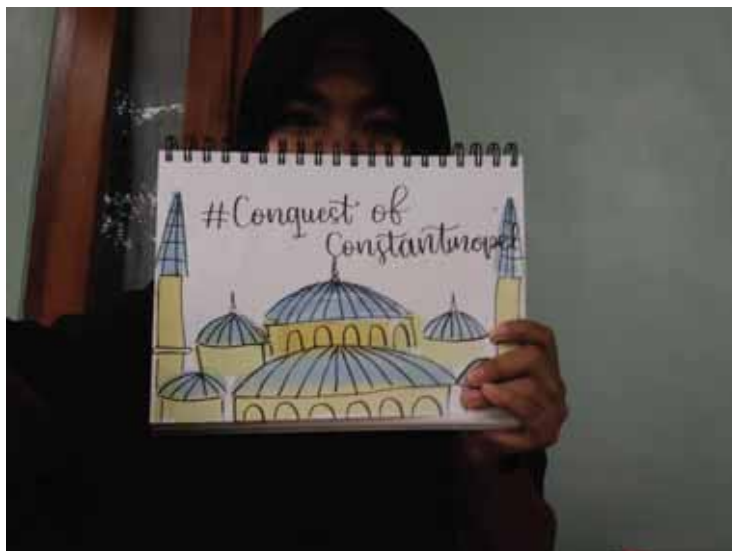 #Conquest of
Constantinopel